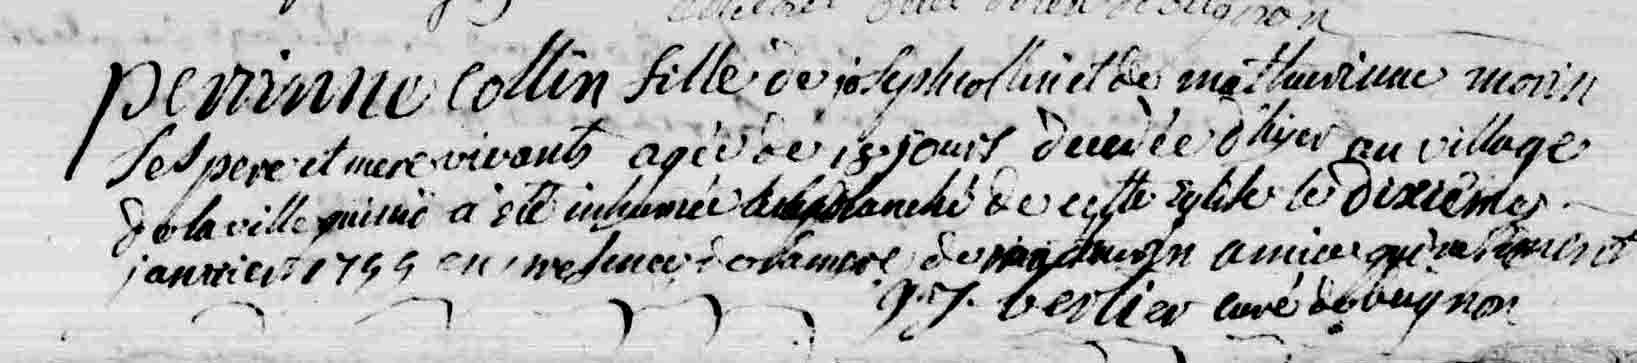 perrinne collin fille de joseph collin et de mathurinne morin
ses pere et mere vivants agée de jours decedée d'hyer au village
de la ville a été inhumée de cette eglise le dixieme
janvier 1755 en presence de sa mere de amice qui ne signent
verlier curé de bugnon